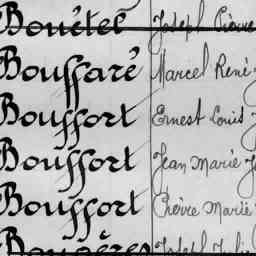 Bouétel Joseph Pierre
Bouffaré Marcel René
Bouffort Ernest Louis
Bouffort Jean Marie
Bouffort Pierre Marie
Bougères Joseph